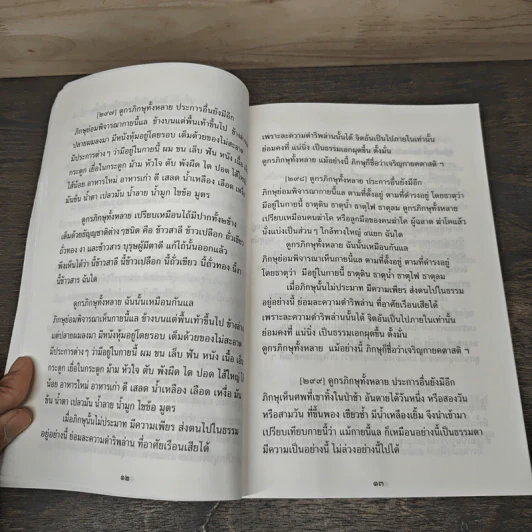 [๒๙๗] ดูกรภิกษุทั้งหลาย ประการอื่นยังมีอีก
ภิกษุย่อมพิจารณากายนี้แล ข้างบนแต่พื้นเท้าขึ้นไป ข้างล่างแต่
ปลายผมลงมา มีหนังหุ้มอยู่โดยรอบ เต็มด้วยของไม่สะอาด
มีประการต่าง ๆ ว่ามีอยู่ในกายนี้ ผม ขน เล็บ ฟัน หนัง เนื้อ เอ็น
กระดูก เยื่อในกระดูก ม้าม หัวใจ ตับ พังผืด ไต ปอด ไส้ใหญ่
ไส้น้อย อาหารใหม่ อาหารเก่า ดี เสลด น้ำเหลือง เลือด เหงื่อ
มันข้น น้ำตา เปลวมัน น้ำลาย น้ำมูก ไขข้อ มูตร
ดูกรภิกษุทั้งหลาย เปรียบเหมือนไถ้มีปากทั้งสองข้าง
เต็มด้วยธัญญชาติต่าง ๆ ชนิด คือ ข้าวสาลี ข้าวเปลือก ถั่วเขียว
ถั่วทอง งา และข้าวสาร บุรุษผู้มีตาดี แก้ไถ้นั้นออกแล้ว
พึงเห็นได้ว่า นี้ข้าวสาลี นี้ข้าวเปลือก นี้ถั่วเขียว นี้ถั่วทอง นี้งา
นี้ข้าวสาร ฉันใด
ดูกรภิกษุทั้งหลาย ฉันนั้นเหมือนกันแล
ภิกษุย่อมพิจารณาเห็นกายนี้แล ข้างบนแต่พื้นเท้าขึ้นไป ข้างล่าง
แต่ปลายผมลงมา มีหนังหุ้มอยู่โดยรอบ เต็มด้วยของไม่สะอาด
มีประการต่าง ๆ ว่ามีอยู่ในกายนี้ ผม ขน เล็บ ฟัน หนัง เนื้อ เอ็น
กระดูก เยื่อในกระดูก ม้าม หัวใจ ตับ พังผืด ไต ปอด ไส้ใหญ่ ไส้
น้อย อาหารใหม่ อาหารเก่า ดี เสลด น้ำเหลือง เลือด เหงื่อ มัน
ข้น น้ำตา เปลวมัน น้ำลาย น้ำมูก ไขข้อ มูตร
เมื่อภิกษุนั้นไม่ประมาท มีความเพียร ส่งตนไปในธรรม
อยู่อย่างนี้ ย่อมละความดำริพล่าน ที่อาศัยเรือนเสียได้
๑๒
เพราะละความดำริพล่านนั้นได้ จิตอันเป็นไปภายในเท่านั้น
ย่อมคงที่ แน่นิ่ง เป็นธรรมเอกผุดขึ้น ตั้งมั่น
ดูกรภิกษุทั้งหลาย แม้อย่างนี้ ภิกษุก็ชื่อว่าเจริญกายคตาสติ ฯ
[๒๙๘] ดูกรภิกษุทั้งหลาย ประการอื่นยังมีอีก
ภิกษุย่อมพิจารณากายนี้แล ตามที่ตั้งอยู่ ตามที่ดำรงอยู่ โดยธาตุว่า
มีอยู่ในกายนี้ ธาตุดิน ธาตุน้ำ ธาตุไฟ ธาตุลม ดูกรภิกษุทั้งหลาย
เปรียบเหมือนคนฆ่าโค หรือลูกมือของคนฆ่าโค ผู้ฉลาด ฆ่าโคแล้ว
นั่งแบ่งเป็นส่วน ๆ ใกล้ทางใหญ่ ๔แยก ฉันใด
ดูกรภิกษุทั้งหลาย ฉันนั้นเหมือนกันแล
ภิกษุย่อมพิจารณาเห็นกายนี้แล ตามที่ตั้งอยู่ ตามที่ดำรงอยู่
โดยธาตุว่า มีอยู่ในกายนี้ ธาตุดิน ธาตุน้ำ ธาตุไฟ ธาตุลม
เมื่อภิกษุนั้นไม่ประมาท มีความเพียร ส่งตนไปในธรรม
อยู่อย่างนี้ ย่อมละความดำริพล่าน ที่อาศัยเรือนเสียได้
เพราะละความดำริพล่านนั้นได้ จิตอันเป็นไปภายในเท่านั้น
ย่อมคงที่ แน่นิ่ง เป็นธรรมเอกผุดขึ้น ตั้งมั่น
ดูกรภิกษุทั้งหลาย แม้อย่างนี้ ภิกษุก็ชื่อว่าเจริญกายคตาสติ ฯ
[๒๙๙] ดูกรภิกษุทั้งหลาย ประการอื่นยังมีอีก
ภิกษุเห็นศพที่เขาทิ้งในป่าช้า อันตายได้วันหนึ่ง หรือสองวัน
หรือสามวัน ที่ขึ้นพอง เขียวช้ำ มีน้ำเหลืองเยิ้ม จึงนำเข้ามา
เปรียบเทียบกายนี้ว่า แม้กายนี้แล ก็เหมือนอย่างนี้เป็นธรรมดา
มีความเป็นอย่างนี้ ไม่ล่วงอย่างนี้ไปได้
๑๓